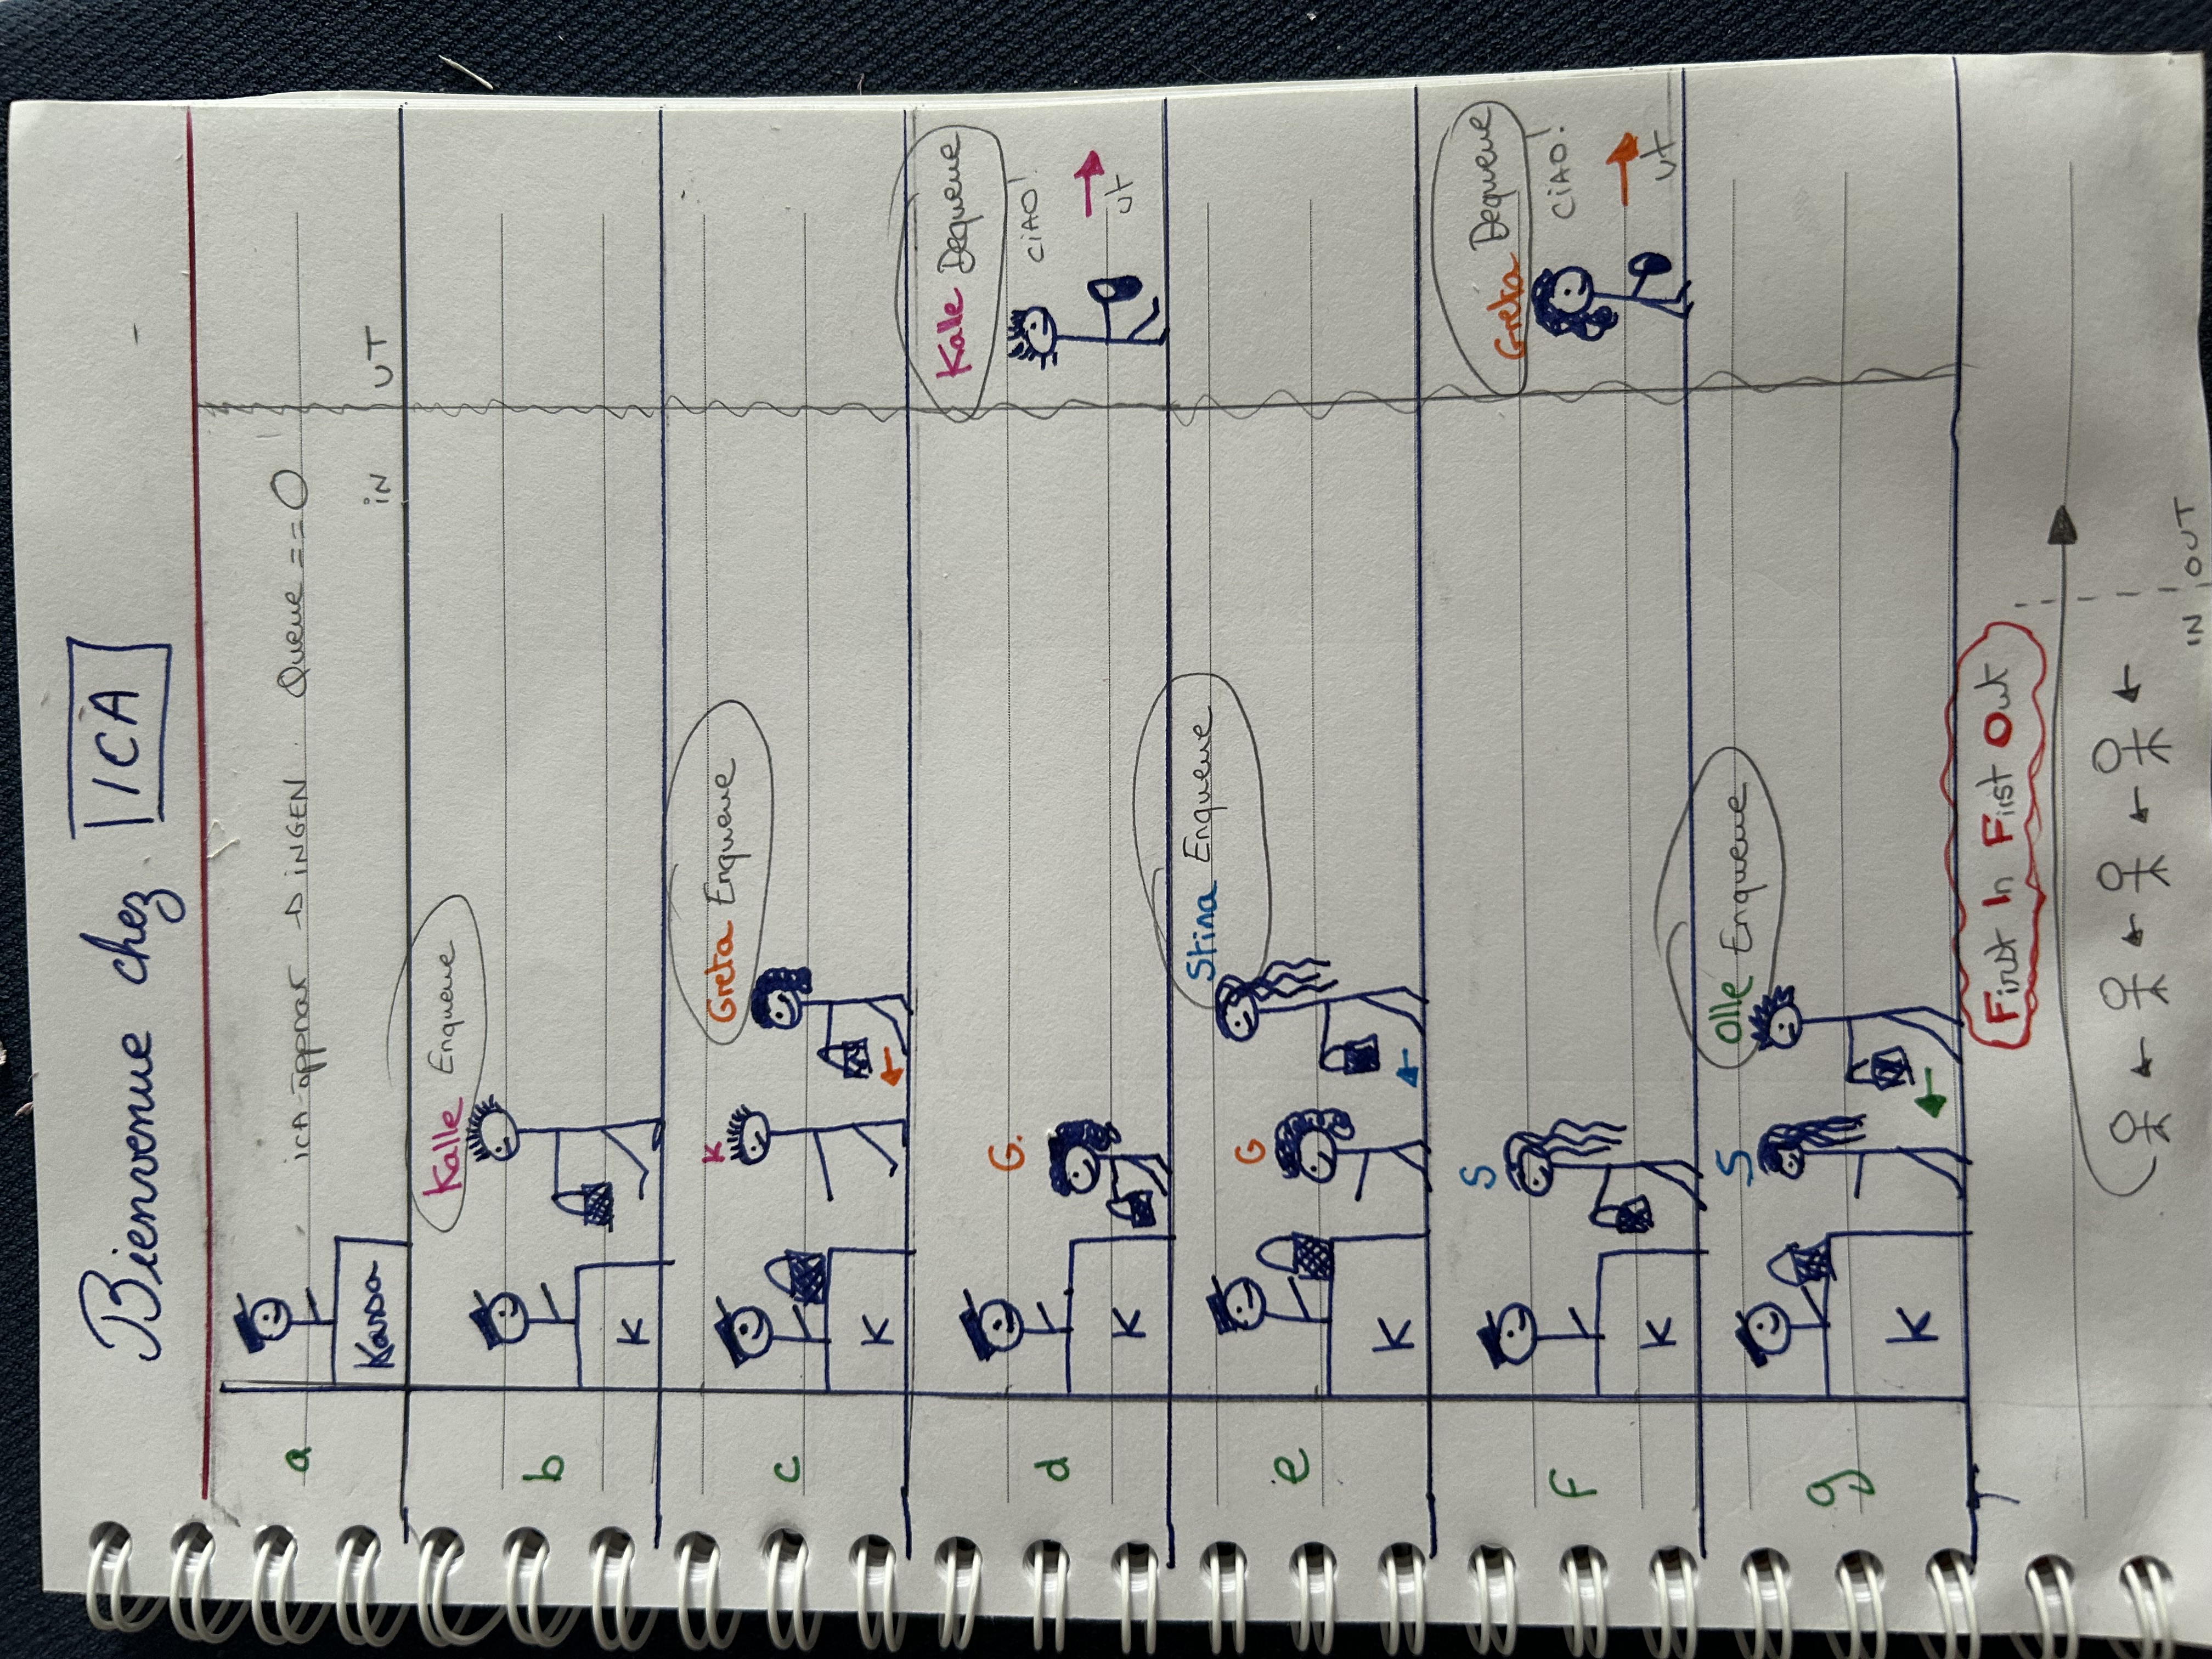 Bienvenue chez ICA
a
ICA öppnar → INGEN Queue == 0
Kassa
IN UT
Kalle Enqueue
b
K
K
Greta Enqueue
c
K
Kalle Dequeue
G.
CIAO!
d
K
ut
Stina Enqueue
G
e
K
S
Greta Dequeue
CIAO!
f
K
ut
S
Olle Enqueue
g
K
First In First Out
IN OUT